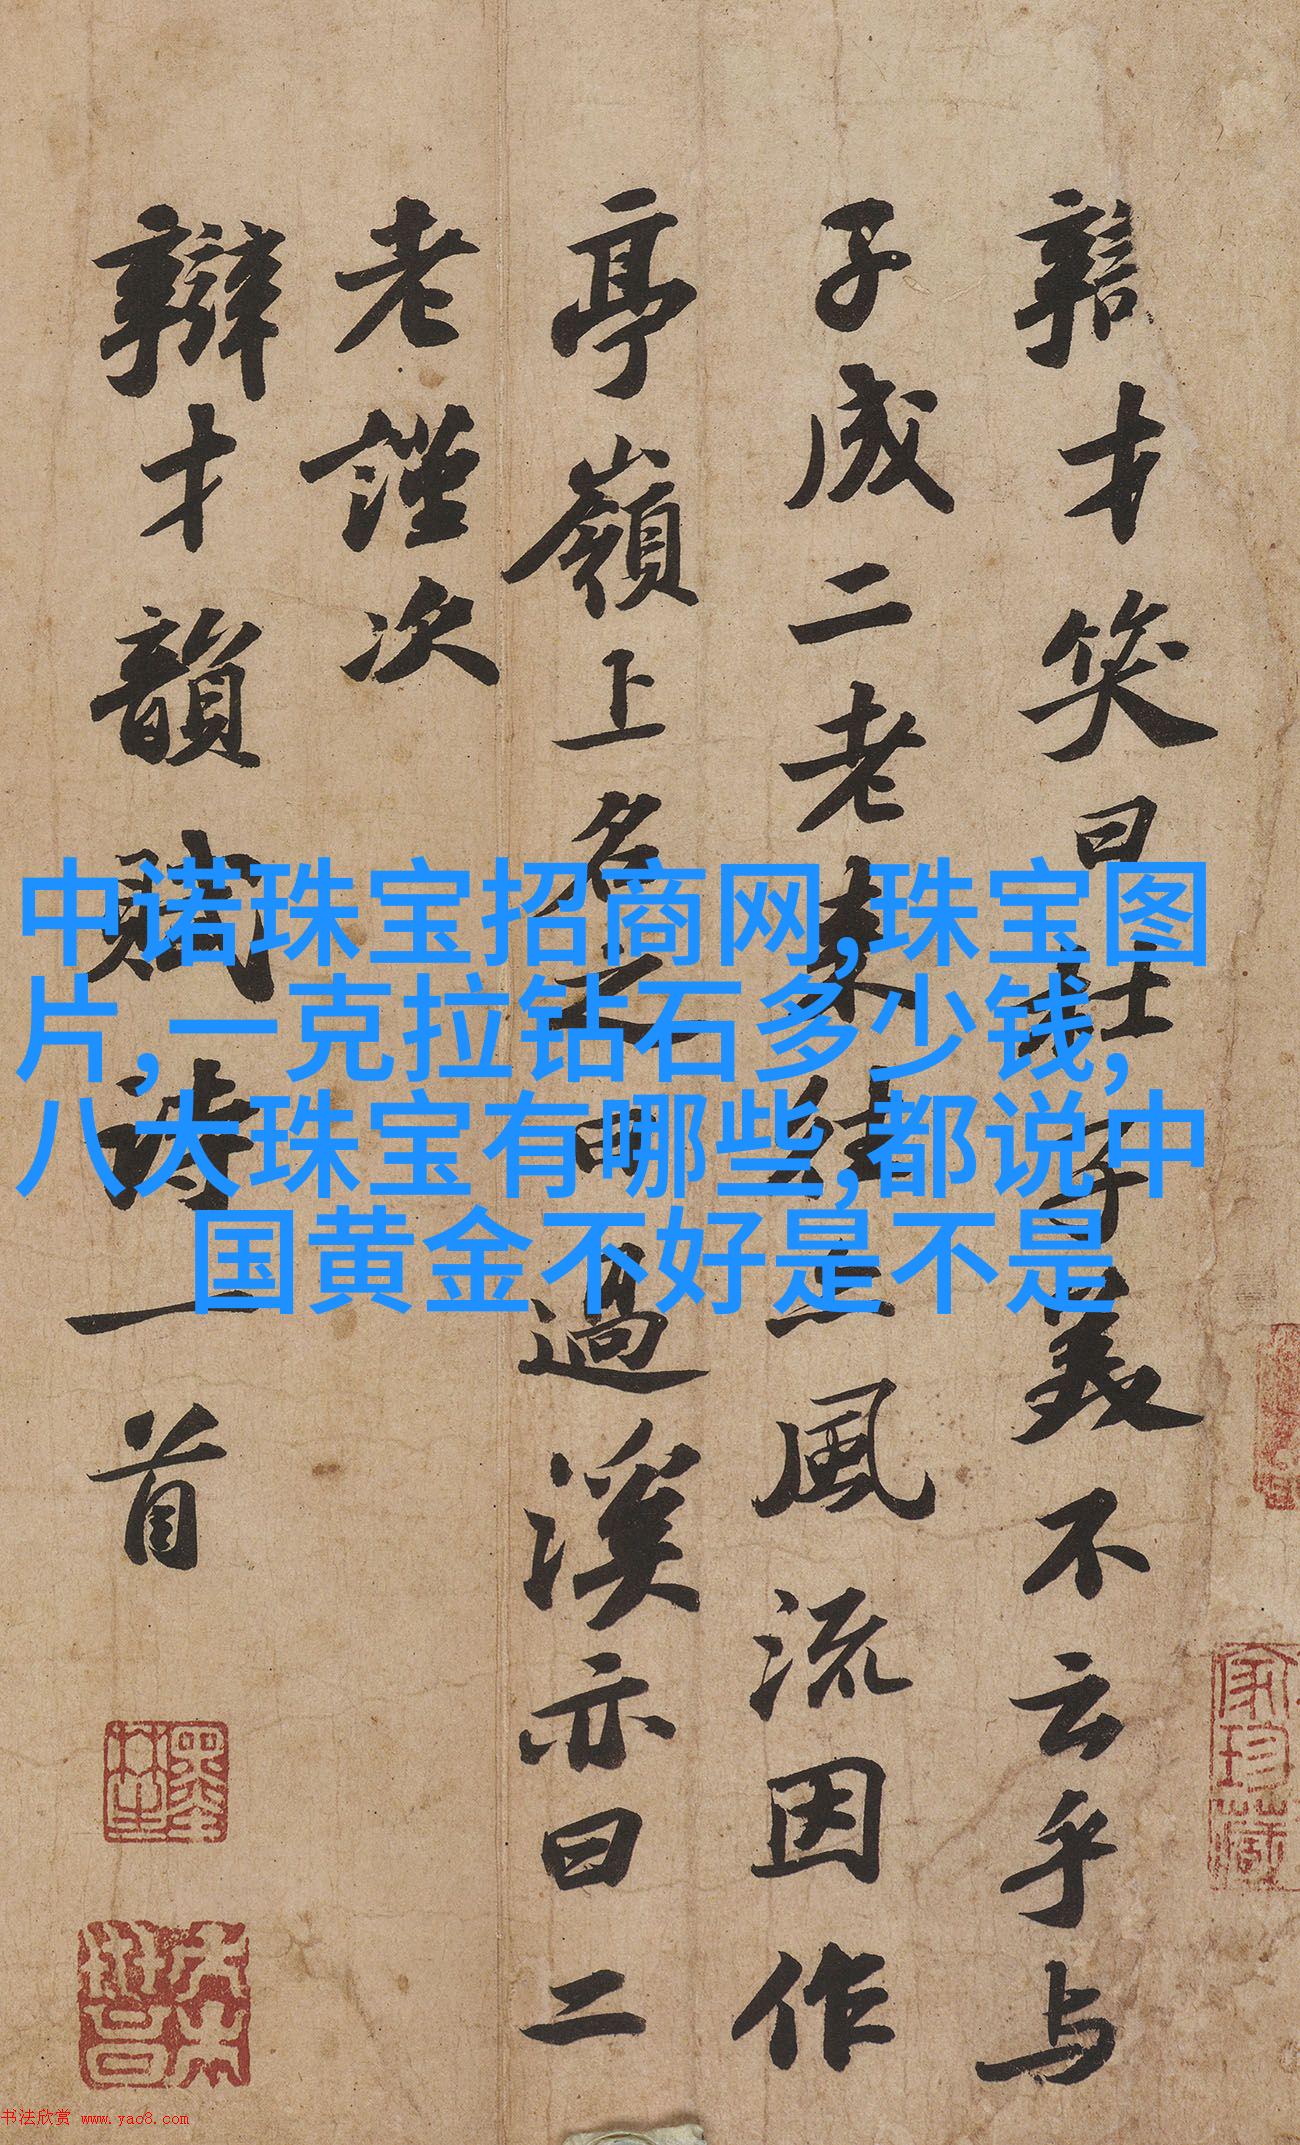 辯才笑曰杜子美不云乎与
子成二老来往亦風流因作
亭嶺上名之曰過溪亦曰二
老謹次
辯才韻賦詩一首
中诺珠宝招商网,珠宝图
片,一克拉钻石多少钱,
八大珠宝有哪些,都说中
国黄金不好是不是
家珍藏
书法欣赏 www.yac8.com